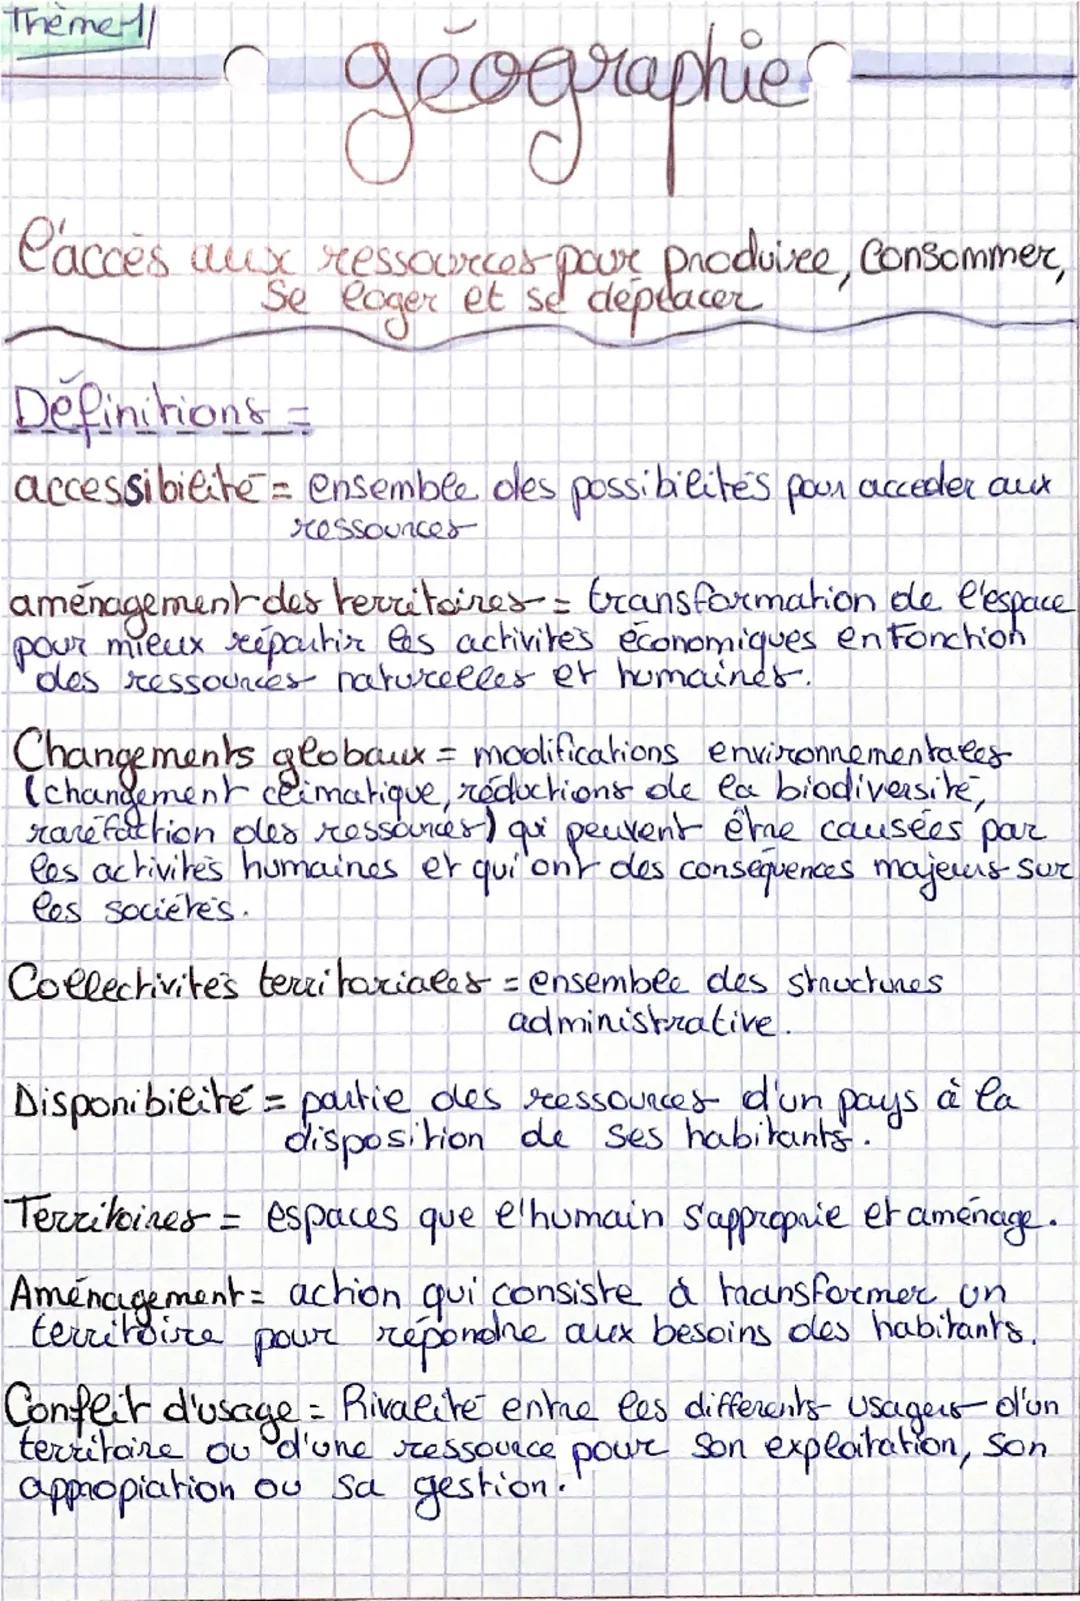 Thème 1
géographie
l'accès aux ressources pour produire, consommer,
se loger et se déplacer
Définitions =
accessibilité = ensemble des possibilités pour acceder aux
ressources
aménagement des territoires = transformation de l'espace
pour mieux répartir les activités économiques en fonction
des ressources naturelles et humaines.
Changements globaux = modifications environnementales
(changement climatique, réductions de la biodiversité,
raréfaction des ressources) qui peuvent être causées par
les activités humaines et qui ont des conséquences majeurs sur
les sociétés.
Collectivités territoriales = ensemble des structures
administrative.
Disponibilité = partie des ressources d'un pays à la
disposition de ses habitants.
Territoires = espaces que l'humain s'approprie et aménage.
Aménagement = action qui consiste à transformer un
territoire pour répondre aux besoins des habitants.
Conflit d'usage = Rivalité entre les différents usagers d'un
territoire ou d'une ressource pour son exploitation, son
appropiation ou sa gestion.